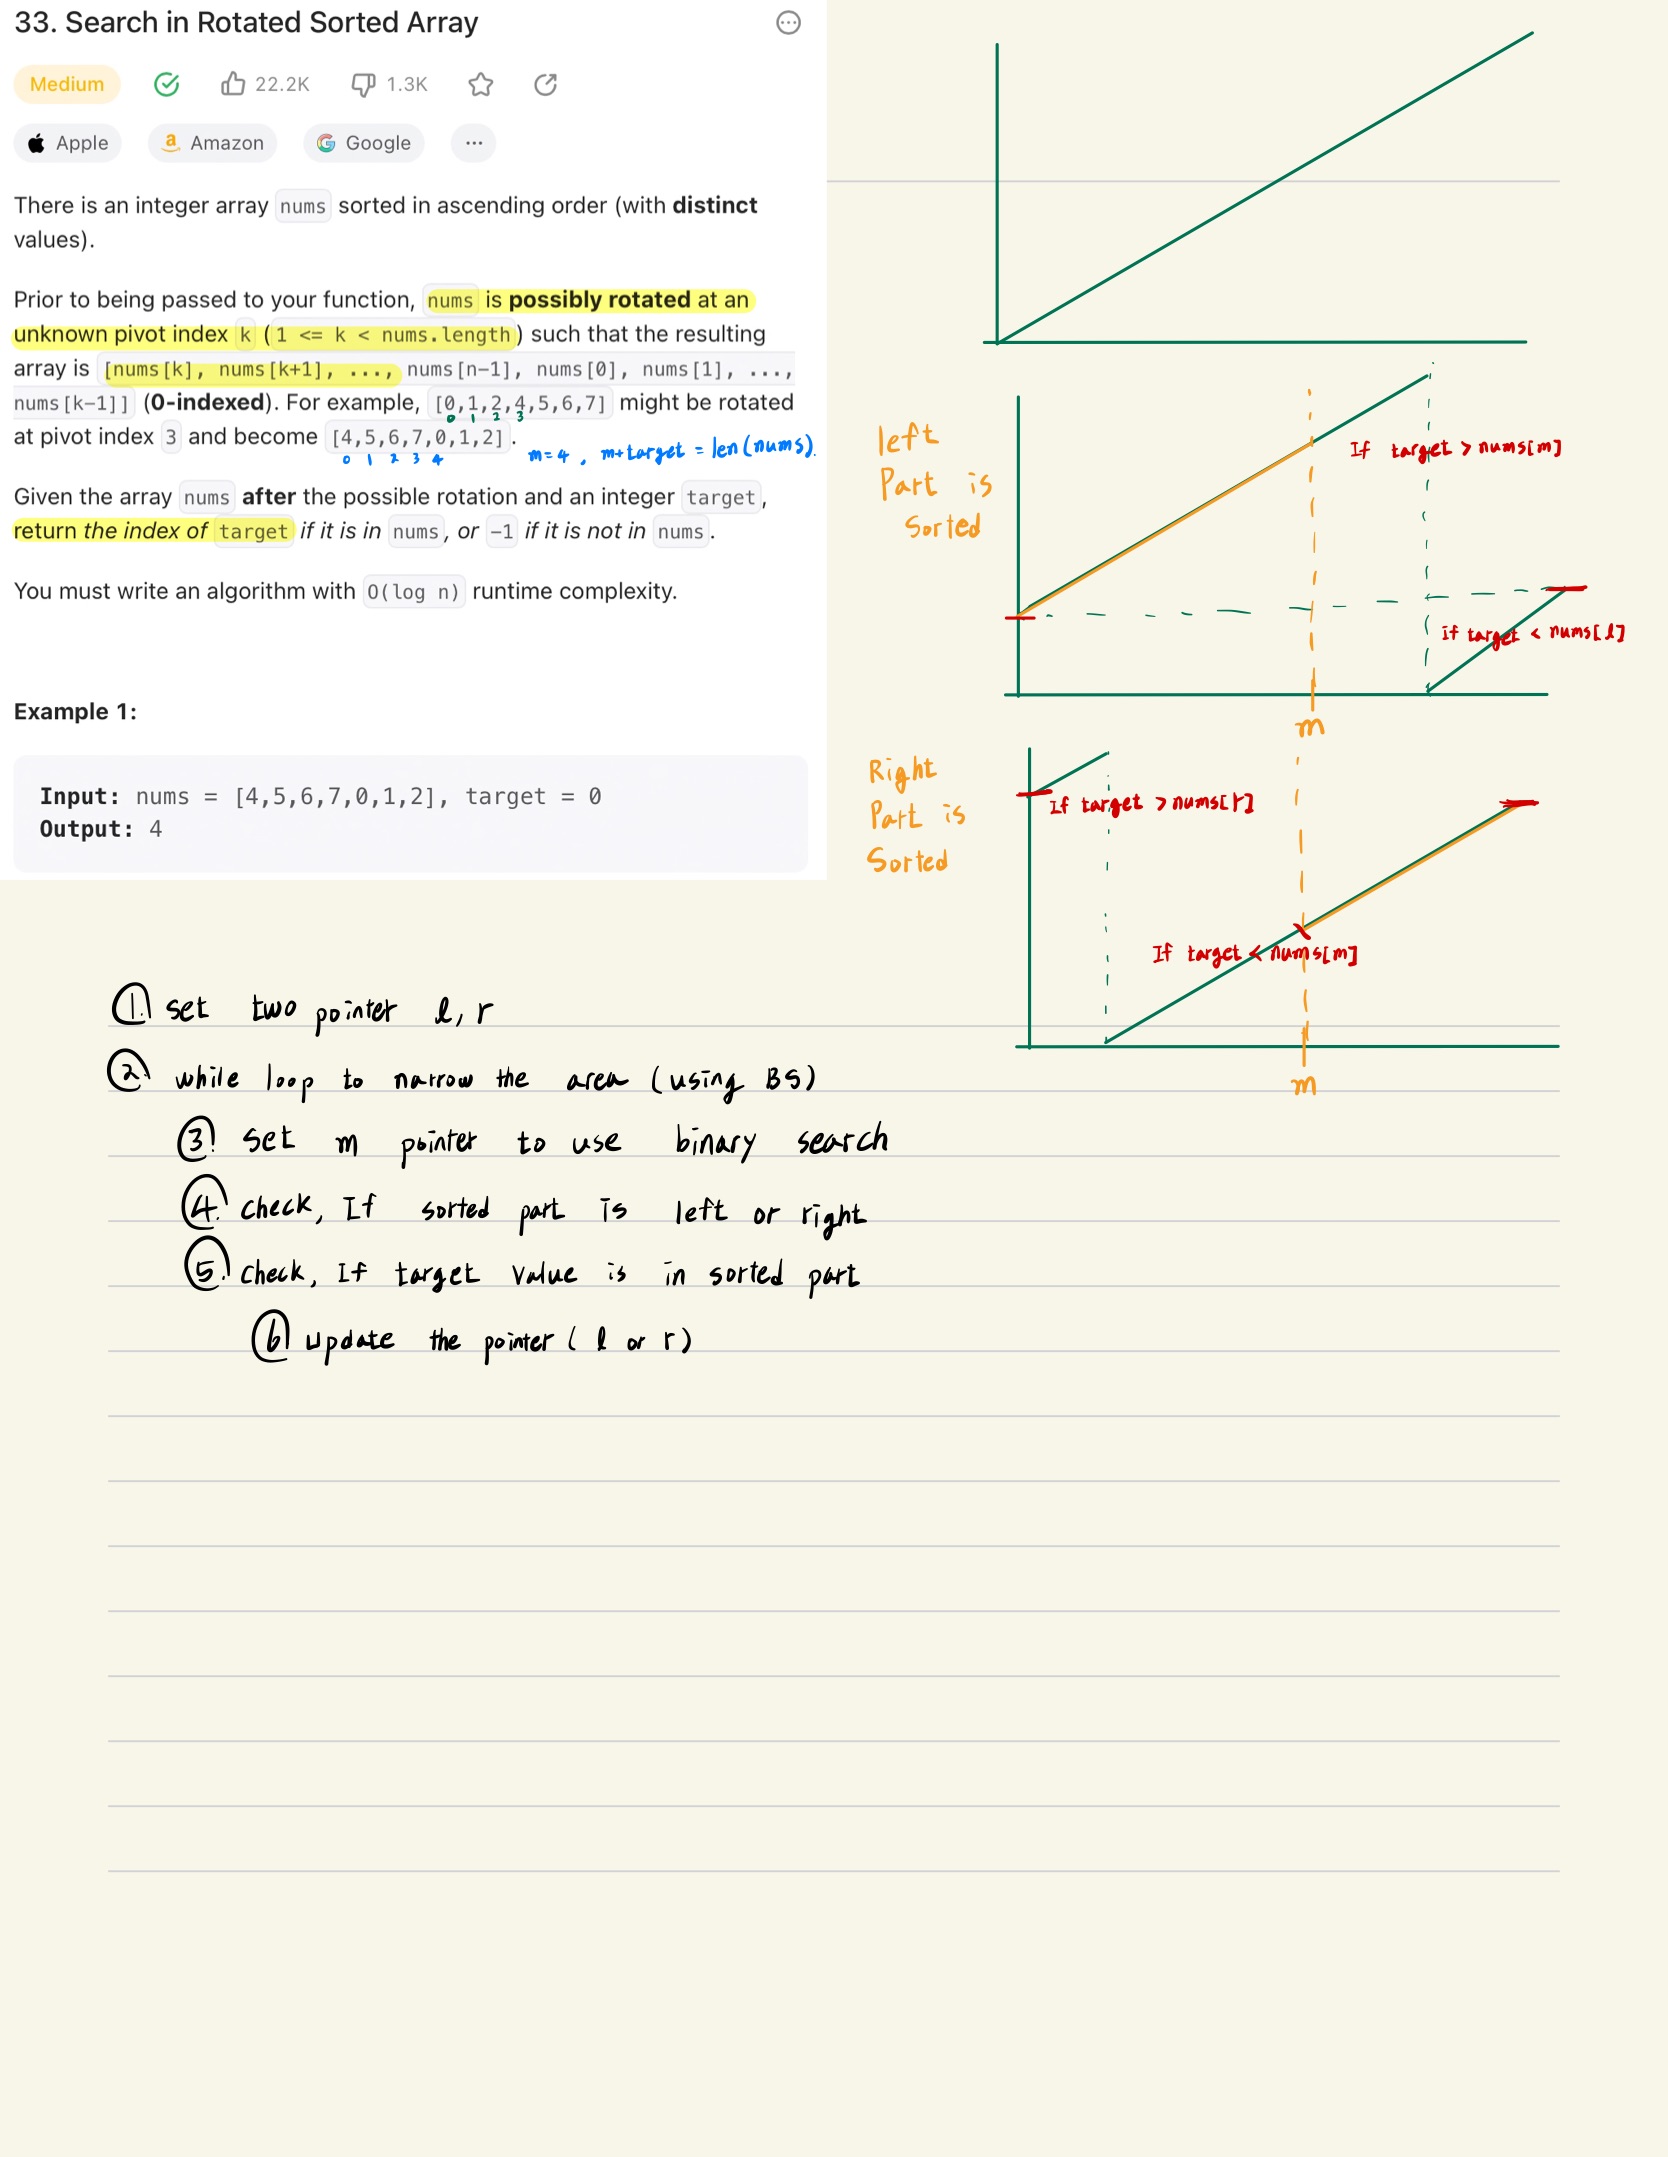 33. Search in Rotated Sorted Array
Medium 22.2K 1.3K
Apple Amazon Google ...
There is an integer array nums sorted in ascending order (with distinct
values).
Prior to being passed to your function, nums is possibly rotated at an
unknown pivot index k (1 <= k < nums.length) such that the resulting
array is [nums[k], nums[k+1], ..., nums[n-1], nums[0], nums[1], ...,
nums[k-1]] (0-indexed). For example, [0,1,2,4,5,6,7] might be rotated
0 1 2 3
at pivot index 3 and become [4,5,6,7,0,1,2].
0 1 2 3 4
m=4, m+target = len(nums).
Given the array nums after the possible rotation and an integer target,
return the index of target if it is in nums, or -1 if it is not in nums.
You must write an algorithm with O(log n) runtime complexity.
Example 1:
Input: nums = [4,5,6,7,0,1,2], target = 0
Output: 4
left
Part is
Sorted
If target > nums[m]
if target < nums[l]
m
Right
Part is
Sorted
If target > nums[r]
If target < nums[m]
m
1. set two pointer l, r
2. while loop to narrow the area (using BS)
3. set m pointer to use binary search
4. check, If sorted part is left or right
5. check, If target value is in sorted part
6 update the pointer ( l or r)